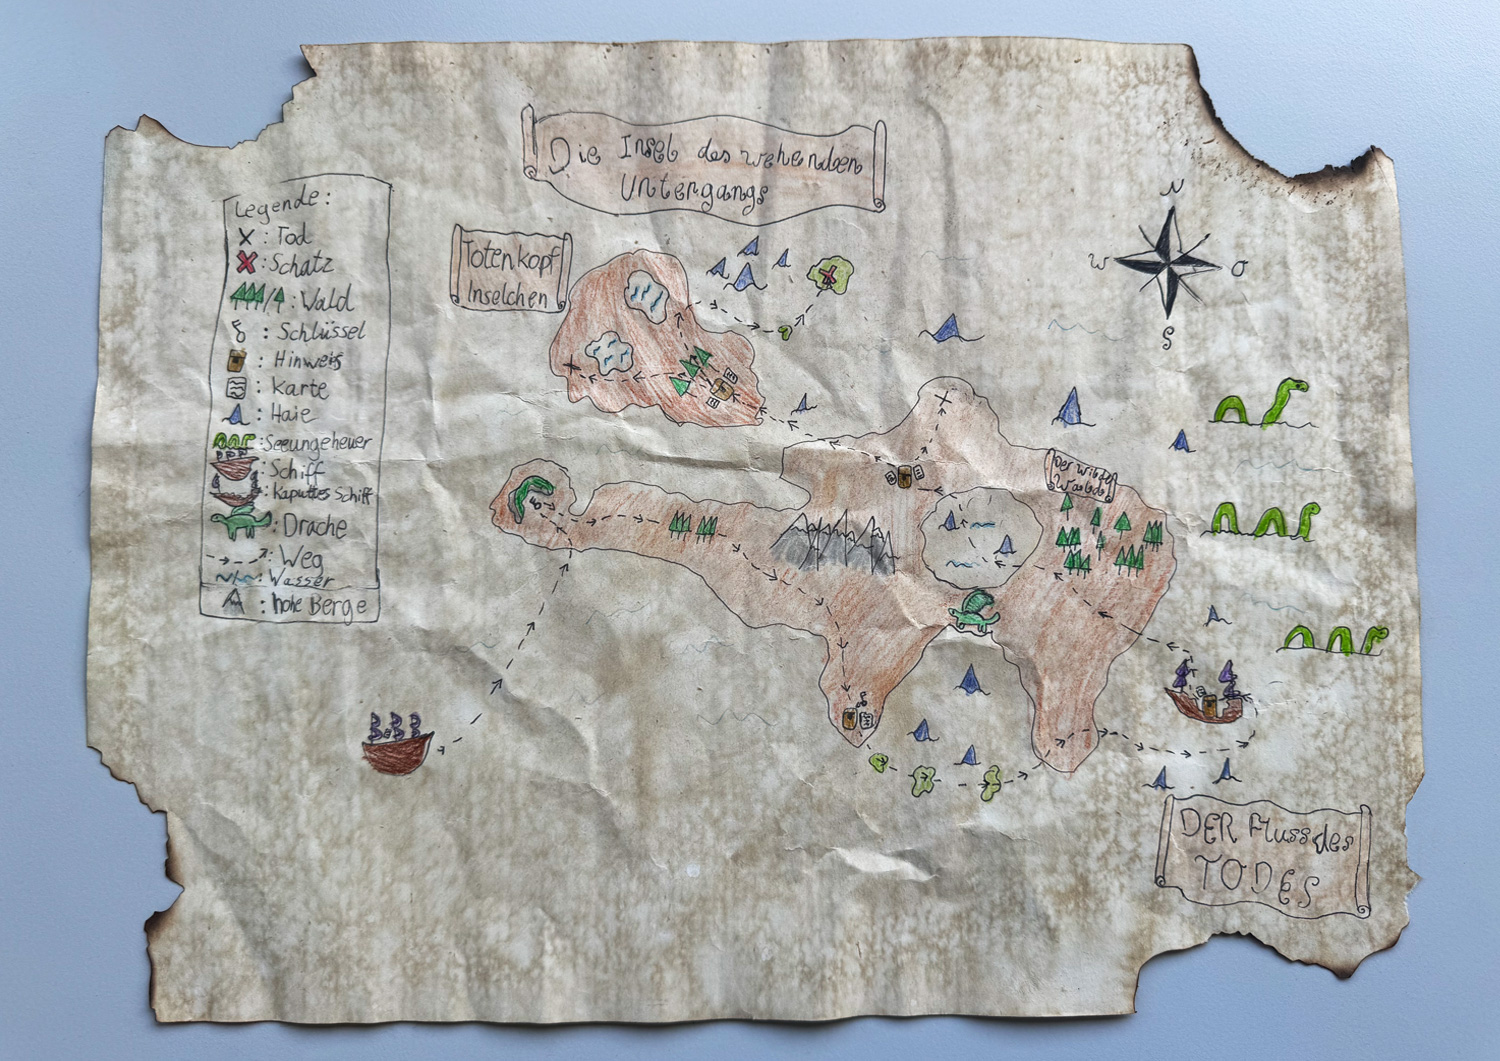 Die Insel des wehenden
Untergangs
Totenkopf
Inselchen
Legende:
X : Tod
X : Schatz
/ : Wald
: Schlüssel
: Hinweis
: Karte
: Haie
: Seeungeheuer
: Schiff
: kaputtes Schiff
: Drache
: Weg
: Wasser
: hohe Berge
N
W
O
S
Der Wilde
DER Fluss des
TODES